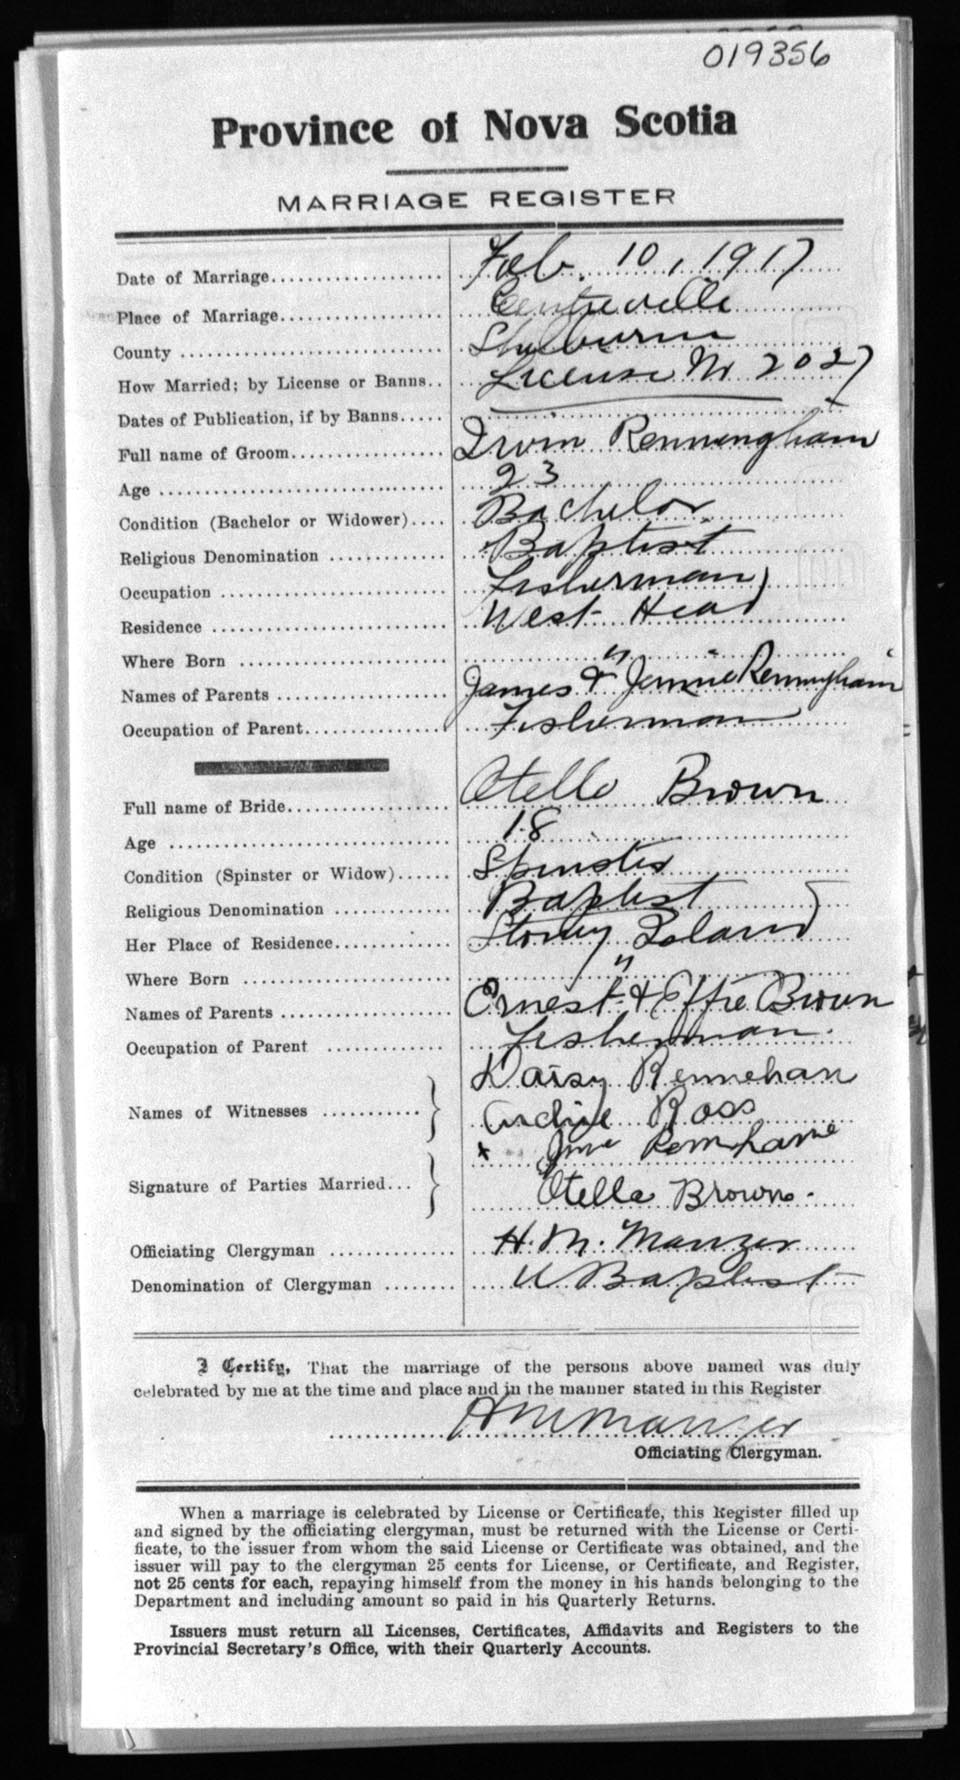 019356
Province of Nova Scotia
MARRIAGE REGISTER
Date of Marriage.................... Feb. 10, 1917
Place of Marriage................... Centreville
County ............................. Shelburne
How Married; by License or Banns.. License No 2027
Dates of Publication, if by Banns.....
Full name of Groom.................. Irvin Renningham
Age ................................ 23
Condition (Bachelor or Widower).... Bachelor
Religious Denomination ............ Baptist
Occupation ......................... Fisherman
Residence .......................... West Head
Where Born ......................... "
Names of Parents ................... James & Jennie Renningham
Occupation of Parent................ Fisherman
Full name of Bride.................. Otella Brown
Age ................................ 18
Condition (Spinster or Widow)...... Spinster
Religious Denomination ............ Baptist
Her Place of Residence............. Stoney Island
Where Born ......................... "
Names of Parents ................... Ernest & Effie Brown
Occupation of Parent ............... Fisherman.
Names of Witnesses ........... Daisy Rennehan
Ross
Signature of Parties Married... x
Otella Brown.
Officiating Clergyman .............. H. M. Manzer
Denomination of Clergyman ........ U Baptist
I Certify, That the marriage of the persons above named was duly
celebrated by me at the time and place and in the manner stated in this Register
H M Manzer
Officiating Clergyman.
When a marriage is celebrated by License or Certificate, this Register filled up
and signed by the officiating clergyman, must be returned with the License or Certi-
ficate, to the issuer from whom the said License or Certificate was obtained, and the
issuer will pay to the clergyman 25 cents for License, or Certificate, and Register,
not 25 cents for each, repaying himself from the money in his hands belonging to the
Department and including amount so paid in his Quarterly Returns.
Issuers must return all Licenses, Certificates, Affidavits and Registers to the
Provincial Secretary's Office, with their Quarterly Accounts.